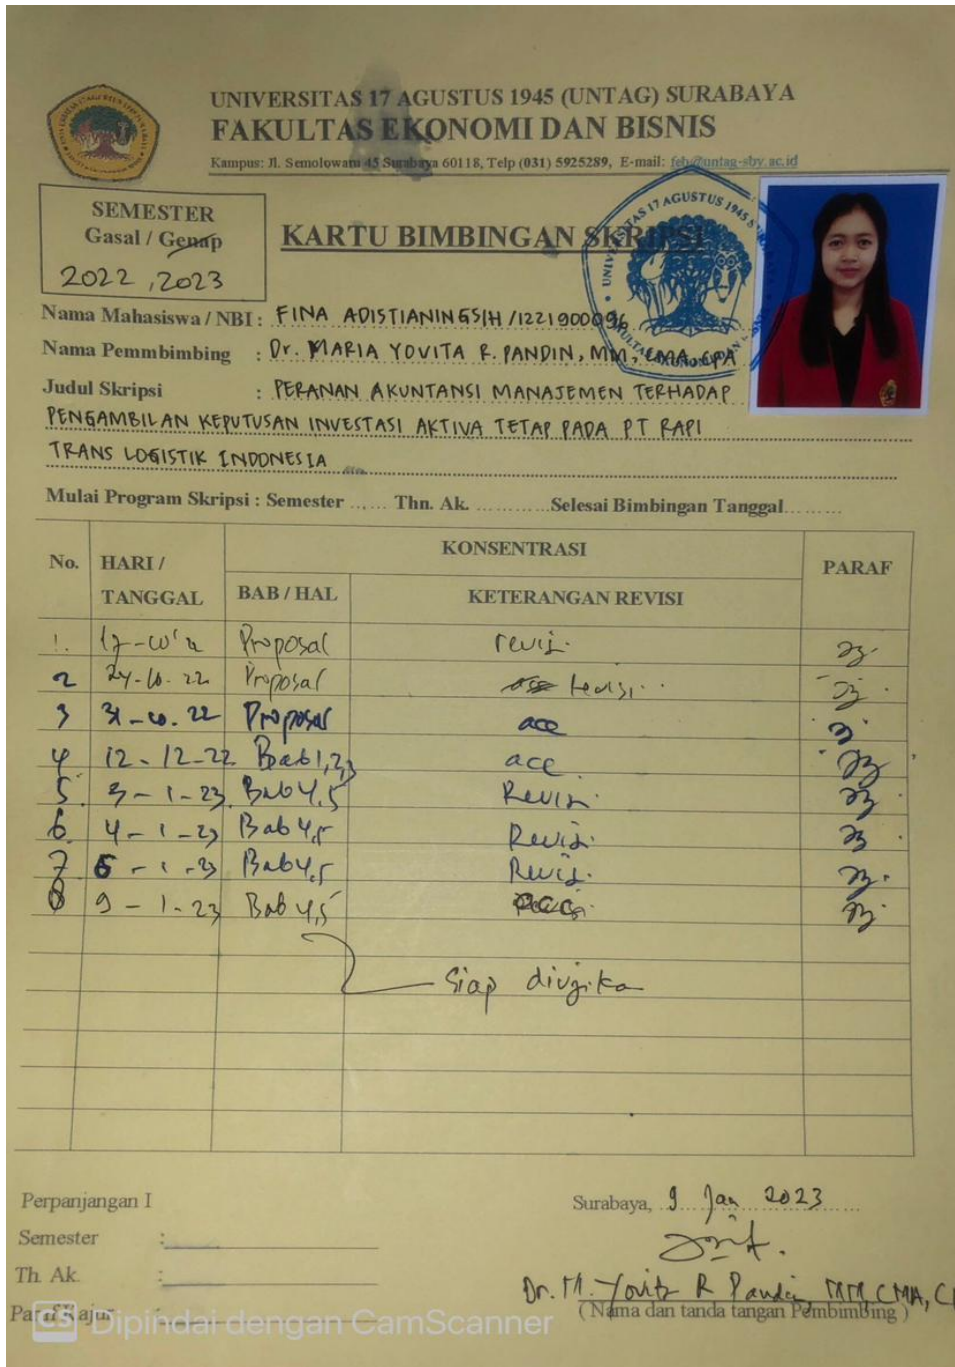 UNIVERSITAS 17 AGUSTUS 1945 (UNTAG) SURABAYA
FAKULTAS EKONOMI DAN BISNIS
Kampus: Jl. Semolowaru 45 Surabaya 60118, Telp (031) 5925289, E-mail: feb@untag-sby.ac.id
SEMESTER
Gasal / Genap
2022, 2023
KARTU BIMBINGAN SKRIPSI
Nama Mahasiswa / NBI : FINA ADISTIANINGSIH / 1221900096
Nama Pemmbimbing : Dr. MARIA YOVITA R. PANDIN, MM, CMA, CPA
Judul Skripsi : PERANAN AKUNTANSI MANAJEMEN TERHADAP
PENGAMBILAN KEPUTUSAN INVESTASI AKTIVA TETAP PADA PT RAPI
TRANS LOGISTIK INDONESIA
Mulai Program Skripsi : Semester ...... Thn. Ak. ............Selesai Bimbingan Tanggal.........
No. HARI / TANGGAL KONSENTRASI PARAF
BAB / HAL KETERANGAN REVISI
1. Proposal revisi
2 24-10-22 Proposal revisi
3 31-10-22 Proposal acc
4 12-12-22 Bab 1,2,3 acc
5. 3-1-23 Bab 4,5 Revisi
6. 4-1-23 Bab 4,5 Revisi
7 6-1-23 Bab 4,5 Revisi
8 9-1-23 Bab 4,5 acc
Siap diujikan
Perpanjangan I
Semester :
Th. Ak. :
Paraf Kajur :
Surabaya, 9 Jan 2023
Dr. M. Yovita R Pandin, MM, CMA, C
( Nama dan tanda tangan Pembimbing )
CS Dipindai dengan CamScanner